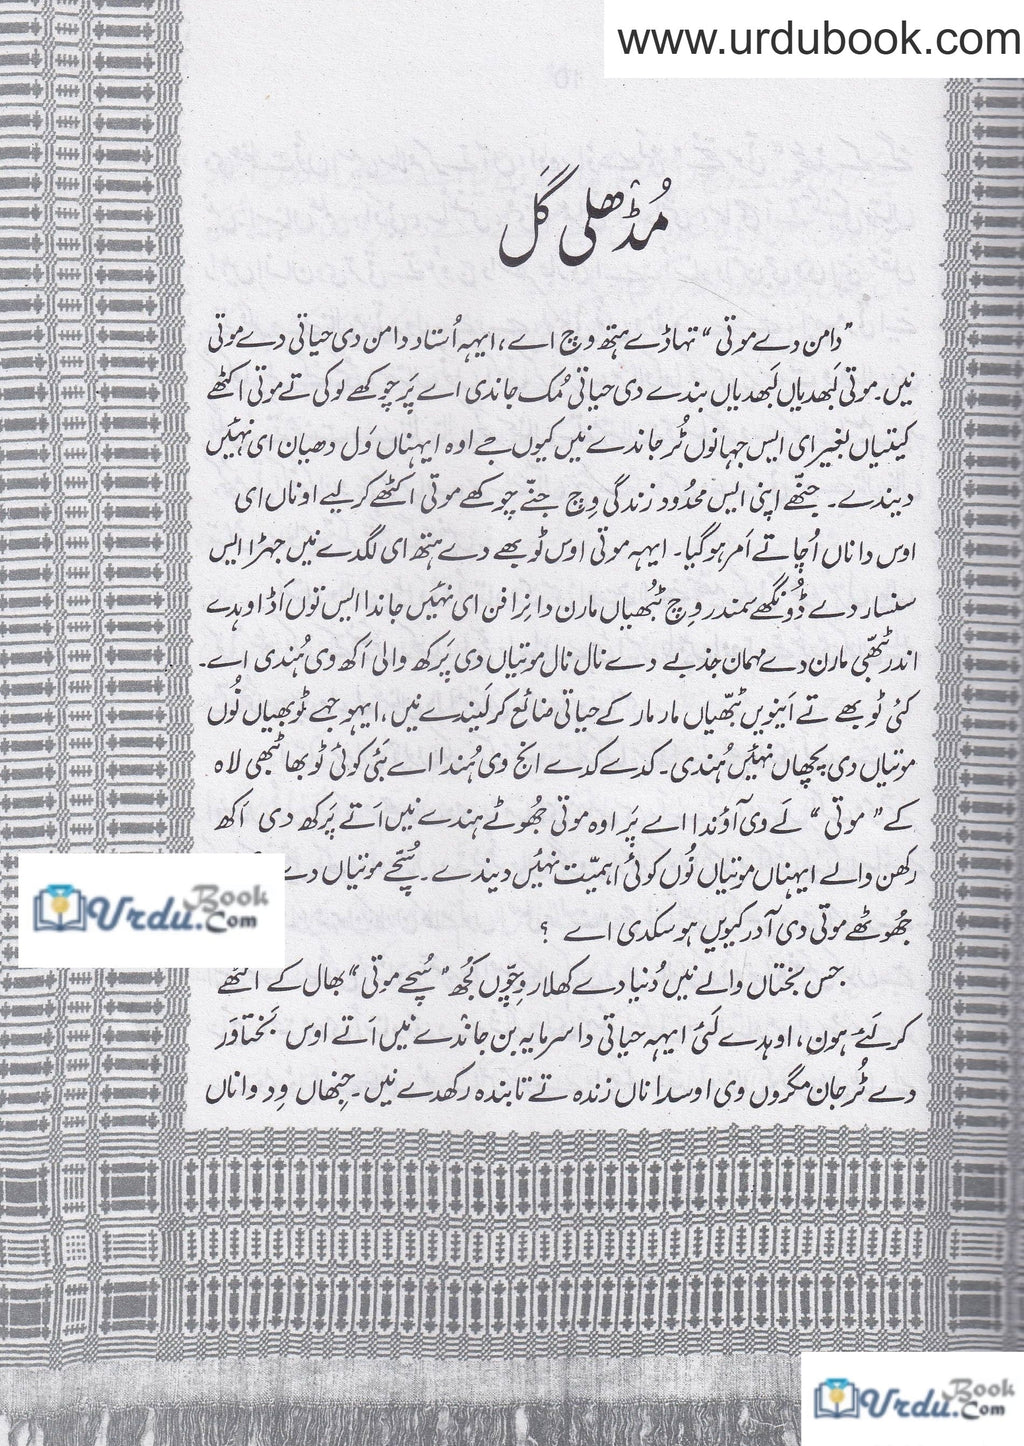 www.urdubook.com
مُڈھلی گَل
”دامن دے موتی“ تہاڈے ہتھ وچ اے، ایہہ اُستاد دامن دی حیاتی دے موتی
نیں۔ موتی لَبھدیاں لَبھدیاں بندے دی حیاتی مُک جاندی اے پَر چوکھے لوکی تے موتی اکٹھے
کیتیاں بغیر ای ایس جہانوں ٹُر جاندے نیں کیوں جے اوہ ایہناں وَل دھیان ای نہئیں
دیندے۔ جنّھے اپنی ایس محدُود زندگی وِچ جنّے چوکھے موتی اکٹھے کر لیے اوناں ای
اوس دا ناں اُچا تے اَمر ہو گیا۔ ایہہ موتی اوس ٹوبھے دے ہتھ ای لگدے نیں جہڑا ایس
سنسار دے ڈُونگھے سمندر وِچ ٹُبھیاں مارن دا نِرا فن ای نہئیں جاندا ایس توں اَڈ اوہدے
اندر ٹُبھّی مارن دے مہان جذبے دے نال نال موتیاں دی پَرکھ والی اَکھ وی ہُندی اے۔
کئی ٹوبھے تے اَینویں ٹُبھّیاں مار مار کے حیاتی ضائع کر لَیندے نیں، ایہو جہے ٹوبھیاں نُوں
موتیاں دی پچھاں نہئیں ہُندی۔ کدے کدے انج وی ہُندا اے بَئی کوئی ٹوبھا ٹُبھی لاہ
کے ”موتی“ لَے وی آؤندا اے پَر اوہ موتی جھُوٹے ہندے نیں اَتے پَرکھ دی اَکھ
رکھن والے ایہناں موتیاں نُوں کوئی اہمیّت نہئیں دیندے۔ سُچّے موتیاں دے
جھُوٹھے موتی دی آدر کیویں ہو سکدی اے ؟
جس بختاں والے نیں دُنیا دے کھلار وِچّوں کُجھ ”سُچے موتی“ بھال کے اکٹھے
کر لَئے ہون، اوہدے لَئی ایہہ حیاتی دا سرمایہ بن جاندے نیں اَتے اوس بَختاوَر
دے ٹُر جان مگروں وی اوسدا ناں زندہ تے تابندہ رکھدے نیں۔ جِنھاں وِدواناں
Urdu Book .Com
Urdu Book .Com